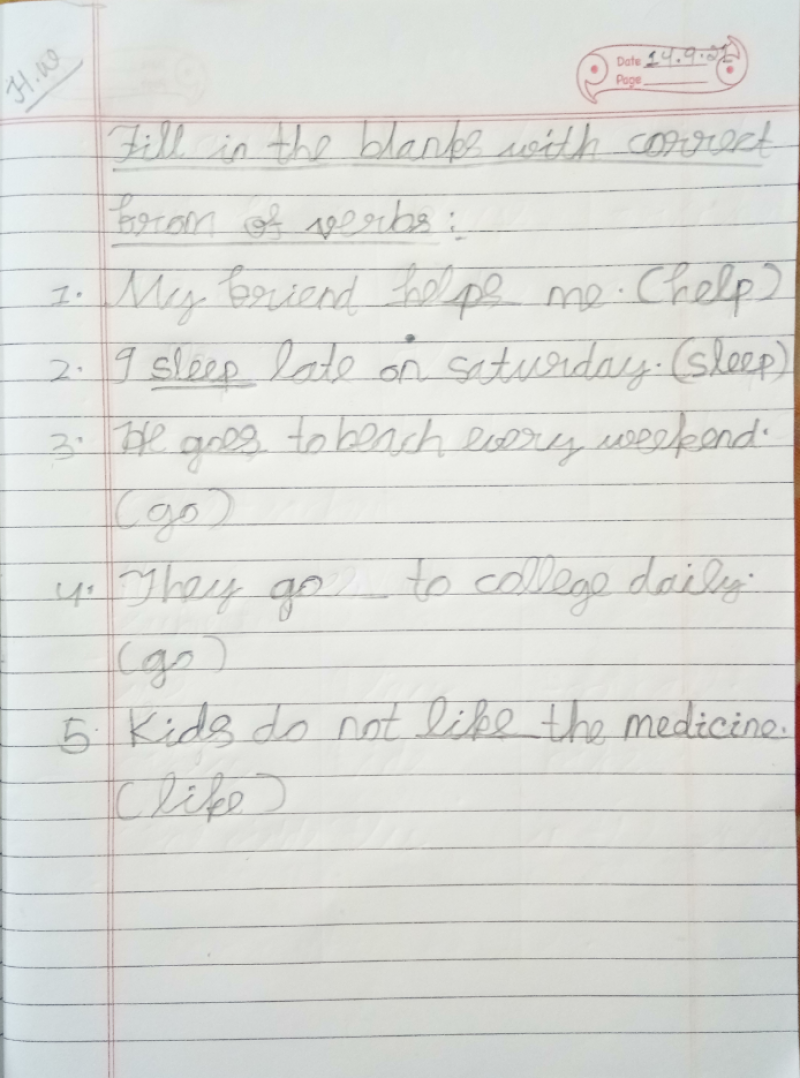 H.W
Date 14.9.21
Page
Fill in the blanks with correct
from of verbs:
1. My friend helps me. (help)
2. I sleep late on saturday. (sleep)
3. He goes to beach every weekend.
(go)
4. They go to college daily.
(go)
5. Kids do not like the medicine.
(like)